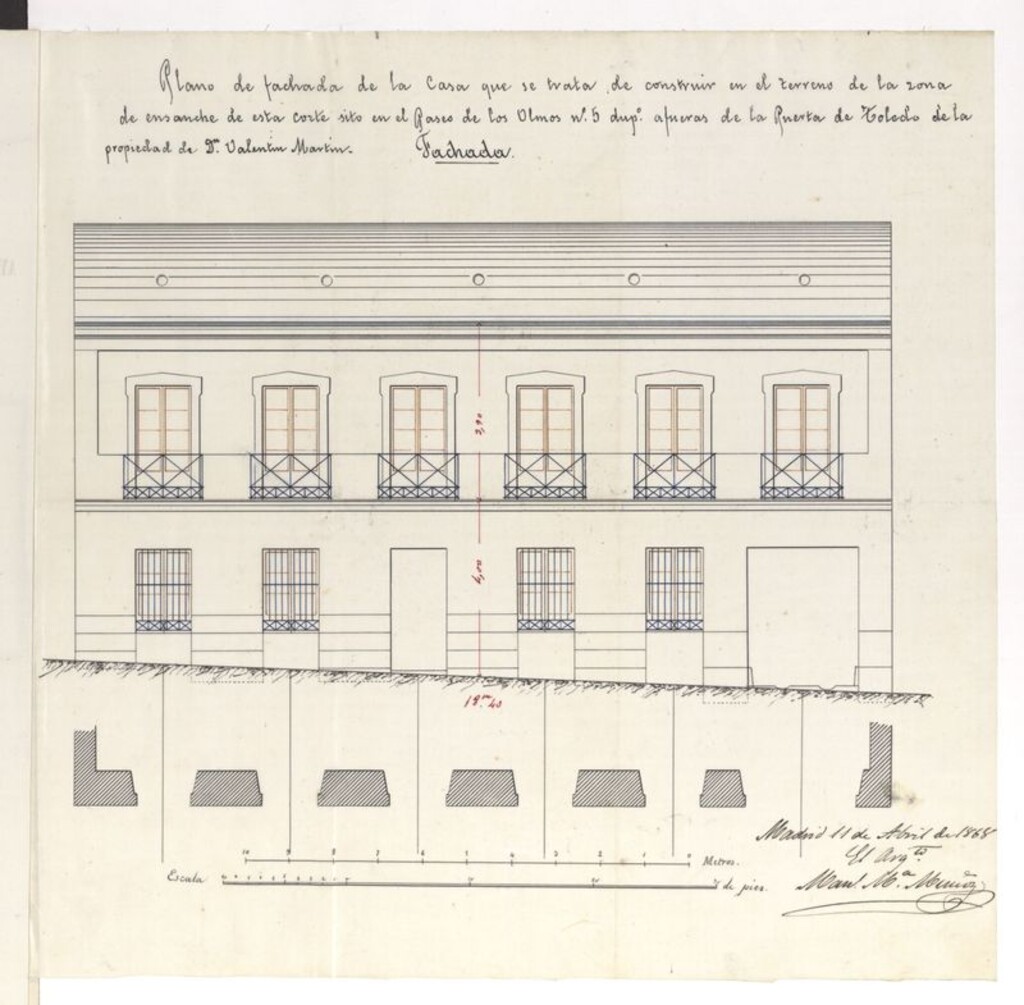 Plano de fachada de la Casa que se trata de construir en el terreno de la zona
de ensanche de esta corte sito en el Paseo de los Olmos nº. 5 dupº. afueras de la Puerta de Toledo de la
propiedad de Dn. Valentin Martin.
Fachada.
3,90
4,00
18m 40
Madrid 11 de Abril de 1868
El Argto
Manl. Mª Muñoz
10 9 8 7 6 5 4 3 2 1 0 Metros.
Escala
de pies.